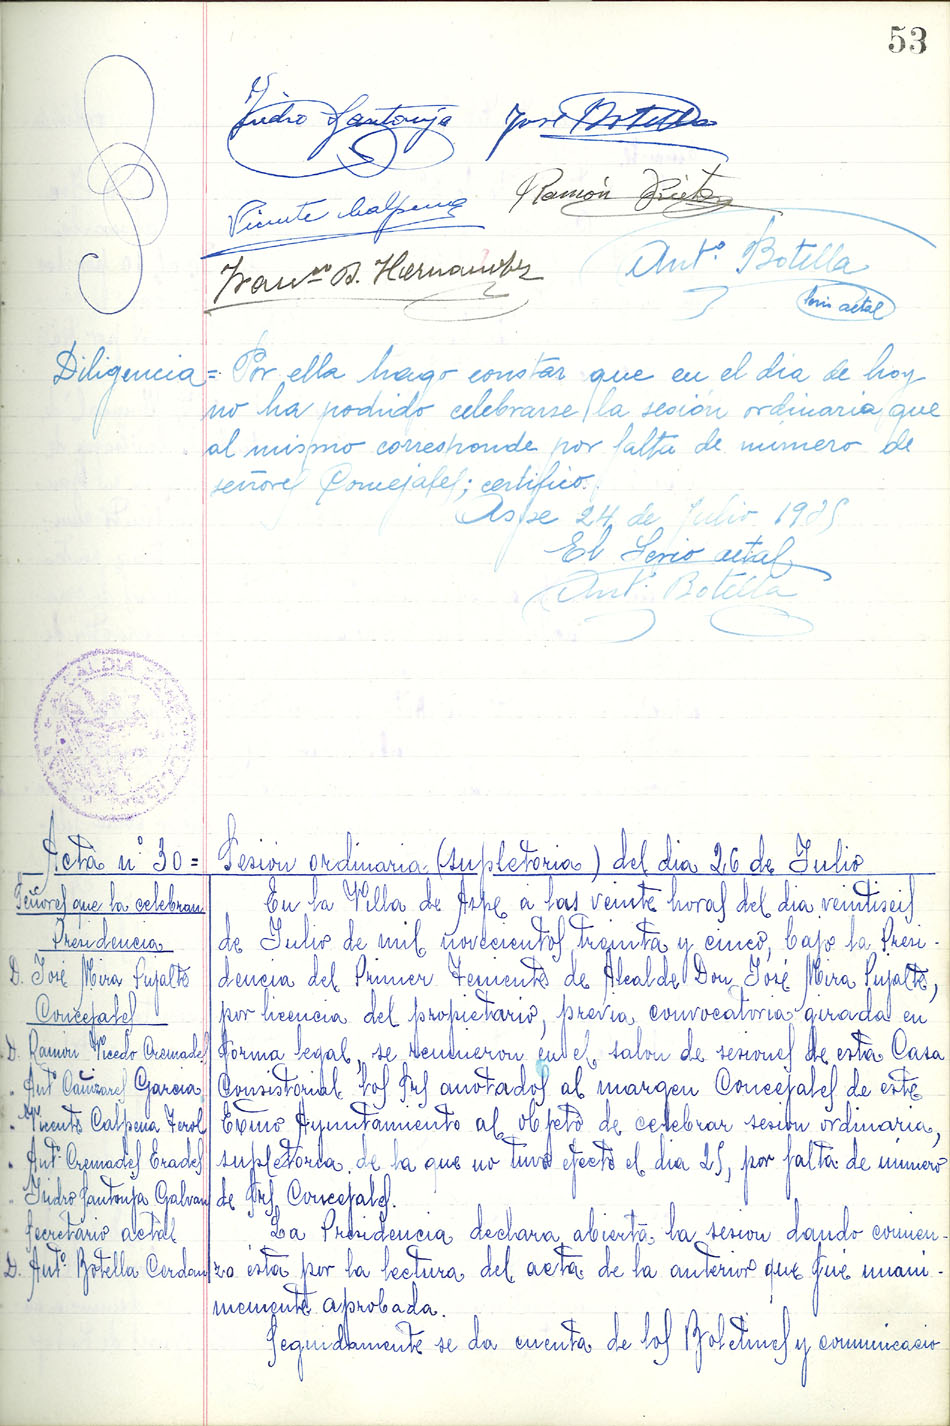 53
Isidro Santonja José Botella
Vicente Calpena Ramón
Franco B. Hernandez Antº Botella
Srio actal
Diligencia = Por ella hago constar que en el dia de hoy
no ha podido celebrarse la sesión ordinaria que
al mismo corresponde por falta de número de
señores Concejales; certifico.
Aspe 24 de Julio 1935
El Srio actal
Antº Botella
ALCALDIA
Acta nº 30 = Sesion ordinaria (supletoria) del dia 26 de Julio
Señores que la celebran
Presidencia
D. José Mira Pujalte
Concejales
D. Ramon Vicedo Cremades
" Antº Cañizares Garcia
" Vicente Calpena Terol
" Antº Cremades Erades
" Isidro Santonja Galvan
Secretario actal
D. Antº Botella Cerdan
En la Villa de Aspe a las veinte horas del dia veintiseis
de Julio de mil novecientos treinta y cinco, bajo la Presi-
dencia del Primer Teniente de Alcalde Don José Mira Pujalte,
por licencia del propietario, previa convocatoria girada en
forma legal, se reunieron en el salon de sesiones de esta Casa
Consistorial los Srs anotados al margen Concejales de este
Excmo Ayuntamiento al objeto de celebrar sesion ordinaria,
supletoria de la que no tuvo efecto el dia 25, por falta de número
de Srs Concejales.
La Presidencia declara abierta la sesion dando comien-
zo esta por la lectura del acta de la anterior que fué unani-
memente aprobada.
Seguidamente se da cuenta de los Boletines y comunicacio